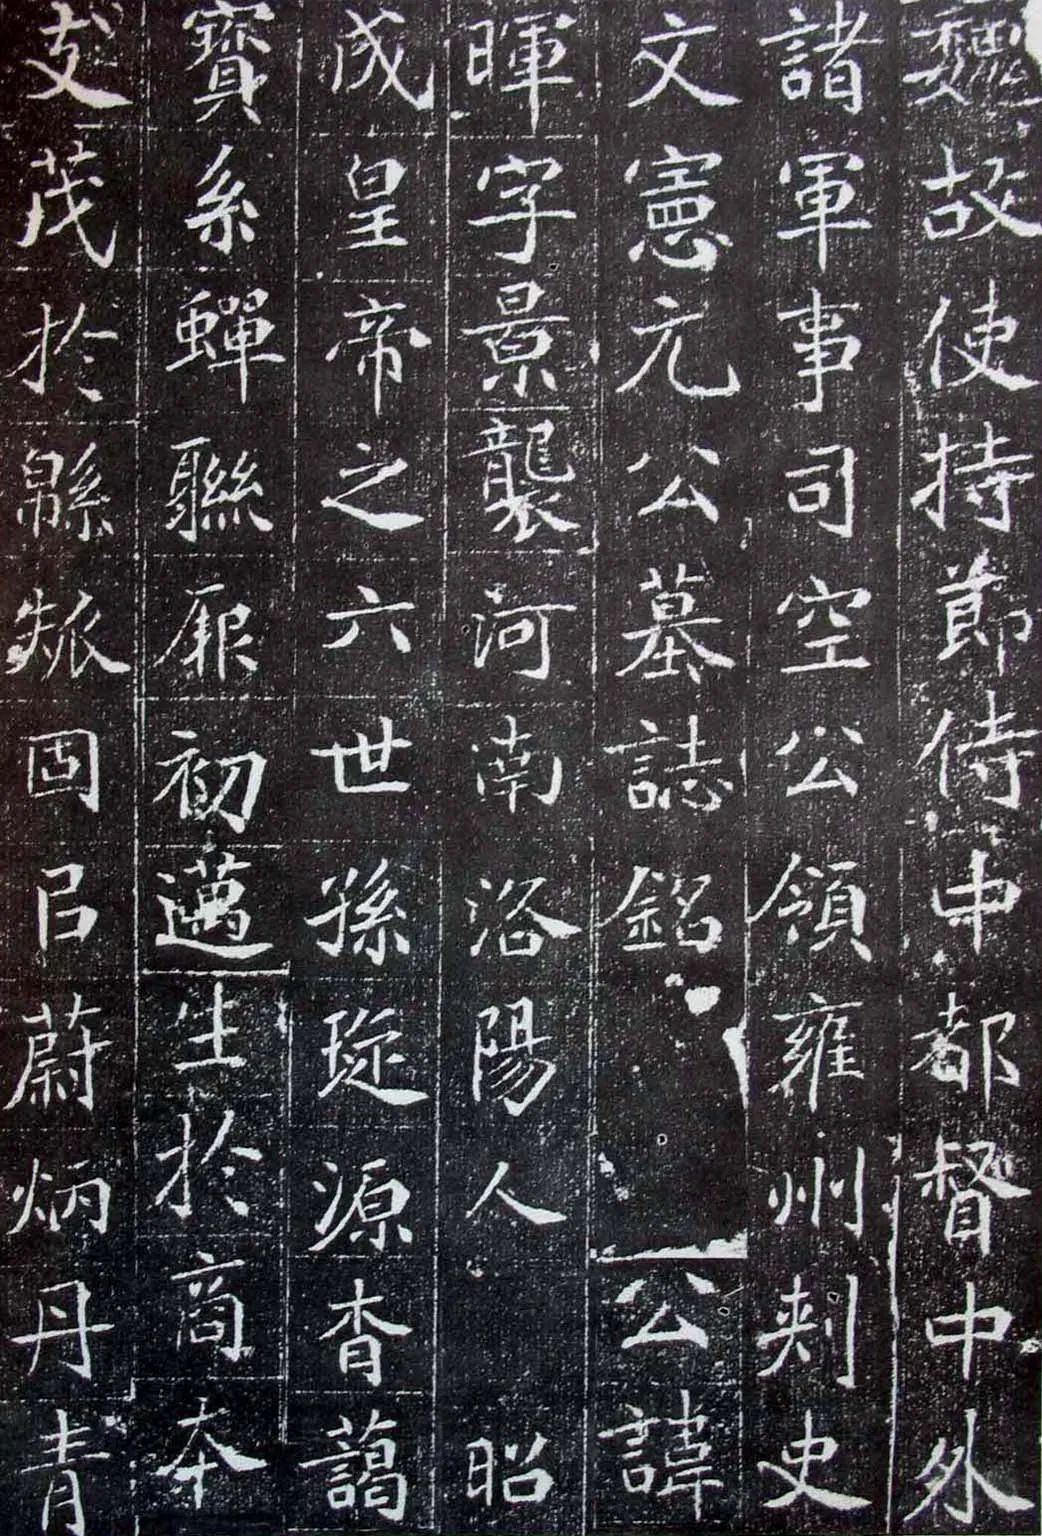 魏故使持節侍中都督中外
諸軍事司空公領雍州刺史
文憲元公墓誌銘公諱
暉字景襲河南洛陽人昭
成皇帝之六世孫琁源杳藹
寶系蟬聯厥初邁生於商本
支茂於緜瓞固以蔚炳丹青